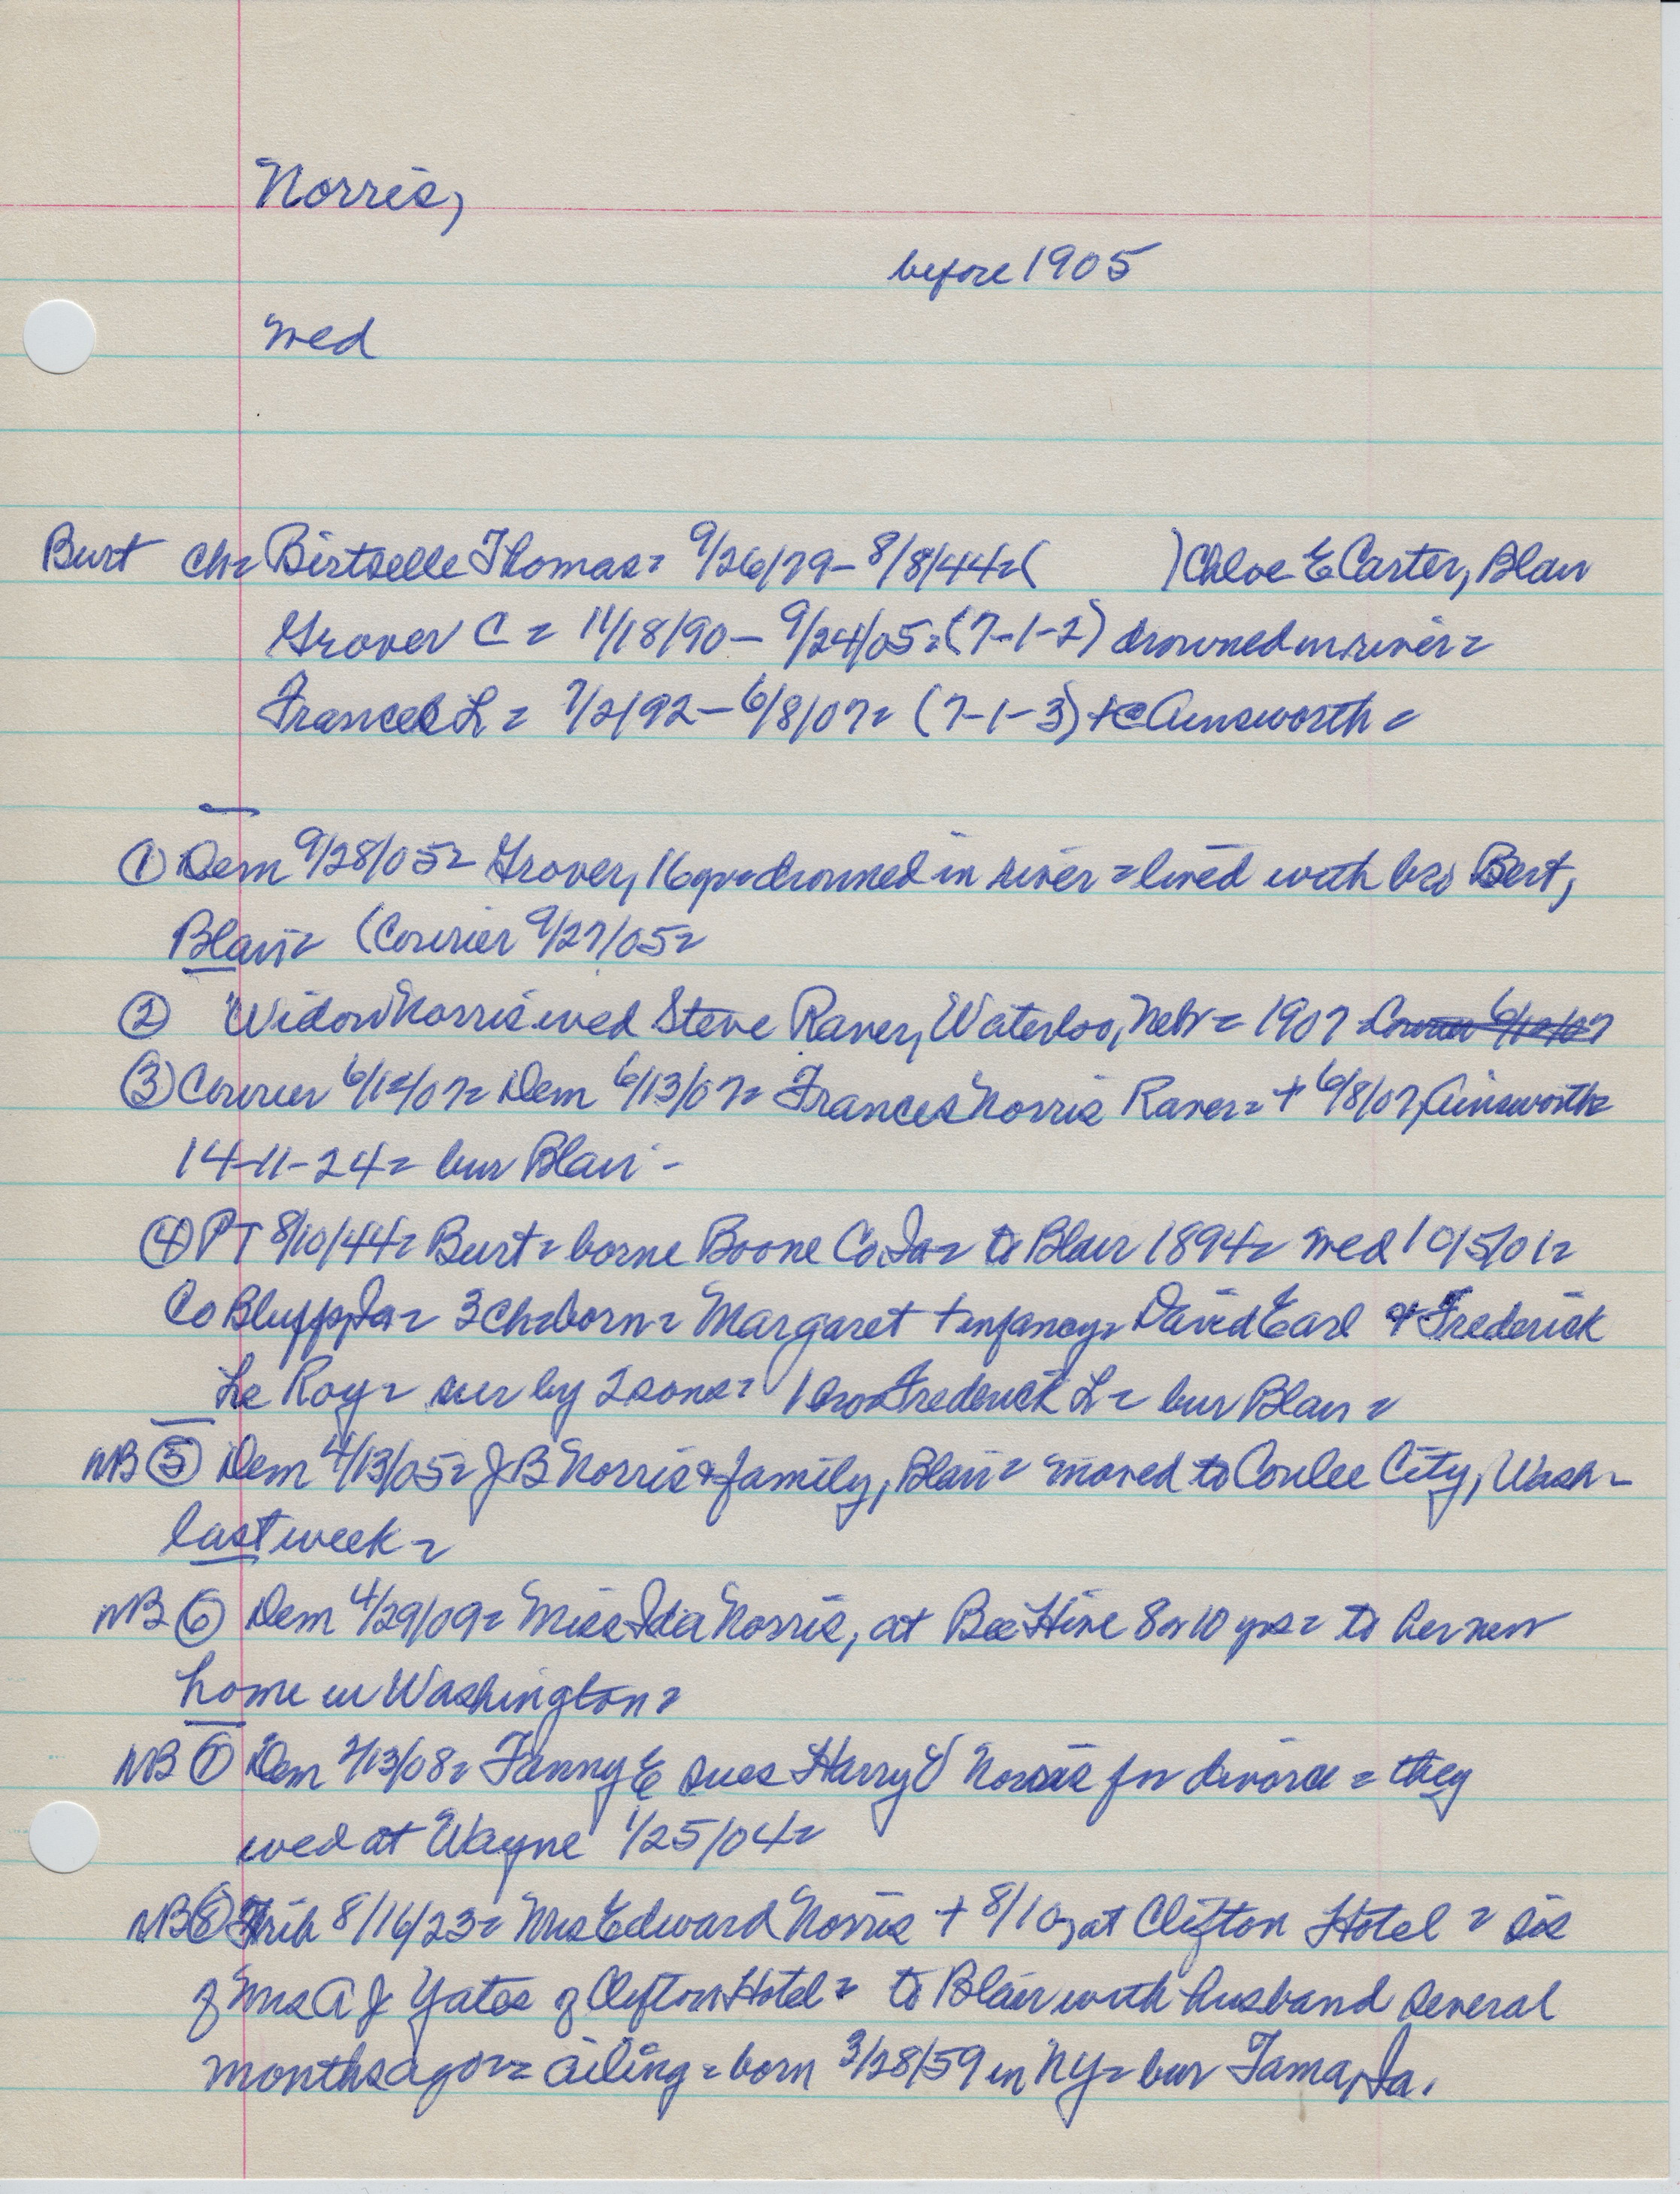 Norris,
before 1905
wed
Burt ch= Birtselle Thomas= 9/26/79-8/8/44=( ) Chloe E Carter, Blair
Grover C = 11/18/90- 9/24/05=(7-1-2) drowned in river=
Frances L = 7/2/92-6/8/07= (7-1-3) + @ Ainsworth=
① Dem 9/28/05= Grover, 16 yr= drowned in river = lived with bro Bert,
Blair= (Courier 9/27/05=
② Widow Norris wed Steve Raver, Waterloo, Nebr= 1907 Courier 6/12/07
③ Courier 6/12/07= Dem 6/13/07= Frances Norris Raver= + 6/8/07, Ainsworth=
14-11-24= bur Blair-
④ PT 8/10/44= Burt= borne Boone Co. Ia= to Blair 1894= wed 10/5/01=
Co Bluffs, Ia= 3 ch= born= Margaret + infancy= David Earl & Frederick
Le Roy= sur by 2 sons= 1 bro= Frederick L= bur Blair=
NB ⑤ Dem 4/13/05= J B Norris & family, Blair= moved to Coulee City, Wash-
last week=
NB ⑥ Dem 4/29/09= Miss Ida Norris, at Bee Hive 8 or 10 yrs= to her new
home in Washington=
NB ⑦ Dem 2/13/08= Fanny E sues Harry V Norris for divorce = they
wed at Wayne 1/25/04=
NB ⑧ Trib 8/16/23= Mrs Edward Norris + 8/10, at Clifton Hotel = sis
of Mrs A J Yates of Clifton Hotel= to Blair with husband several
months ago== ailing= born 3/28/59 in NY= bur Tama, Ia.